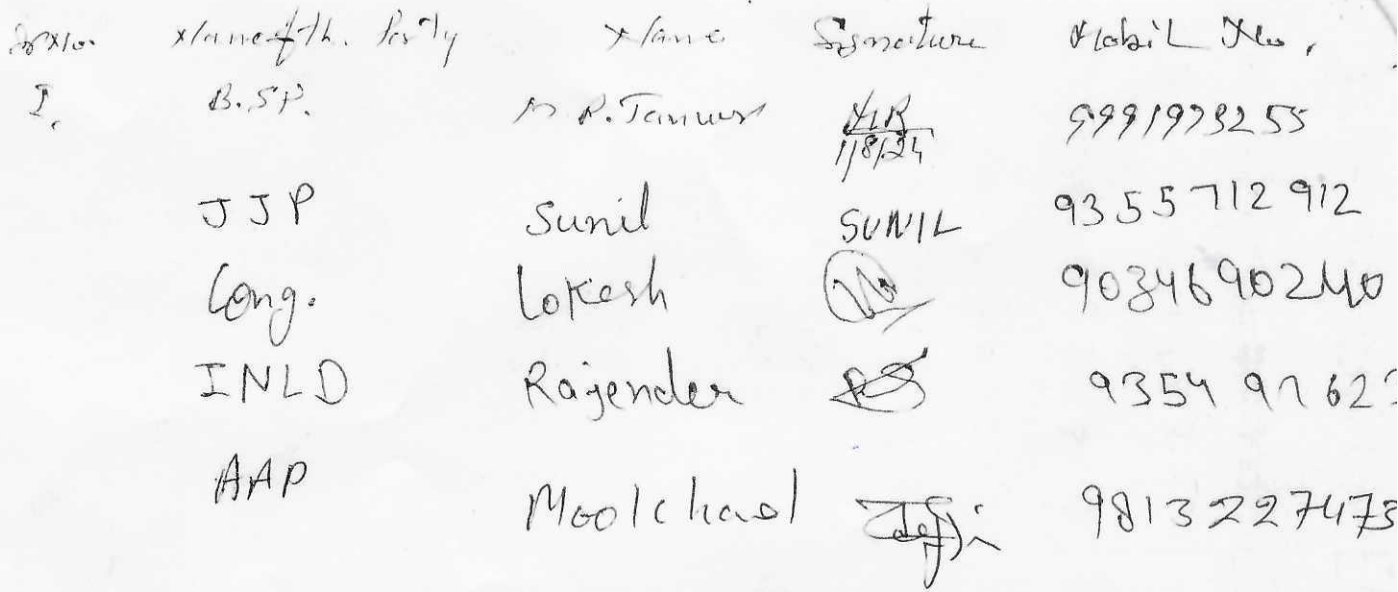 Sr No. Name of th. Party Name Signature Mobil No.
1. B.SP. M R. Tanwar 1/8/24 9991973255
JJP Sunil SUNIL 9355712912
Cong. Lokesh 9034690240
INLD Rajender 9354 97623
AAP Moolchand 9813227473